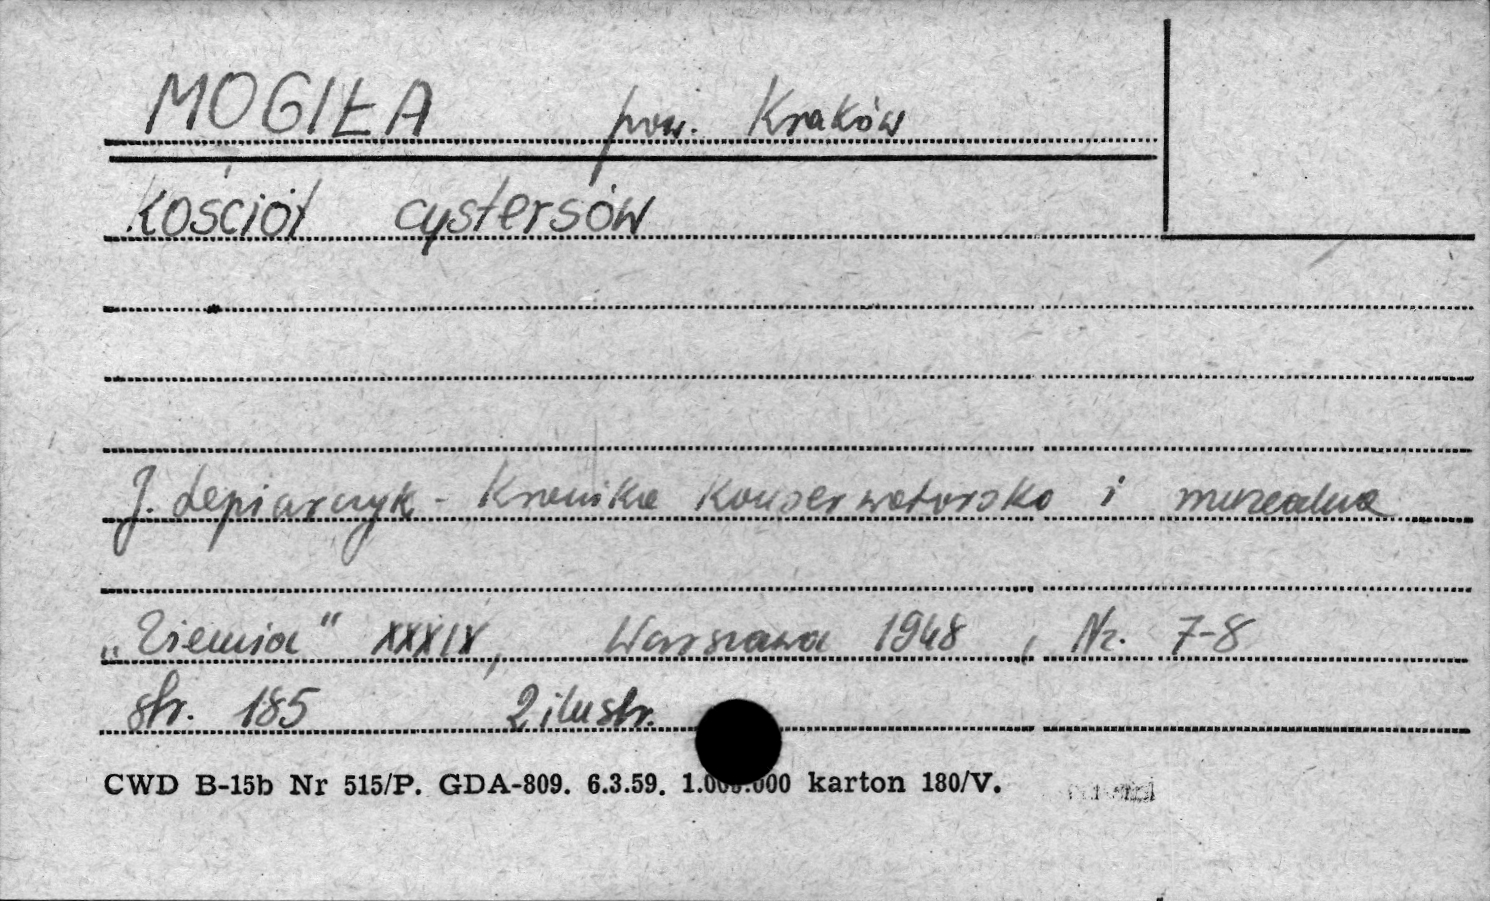 MOGIŁA pow. Kraków
kościół cystersów
J. Lepiarczyk - Kronika konserwatorska i muzealna
„Ziemia" XXXIX, Warszawa 1948, Nr. 7-8
str. 185 2 ilustr.
CWD B-15b Nr 515/P. GDA-809. 6.3.59. 1.000.000 karton 180/V.